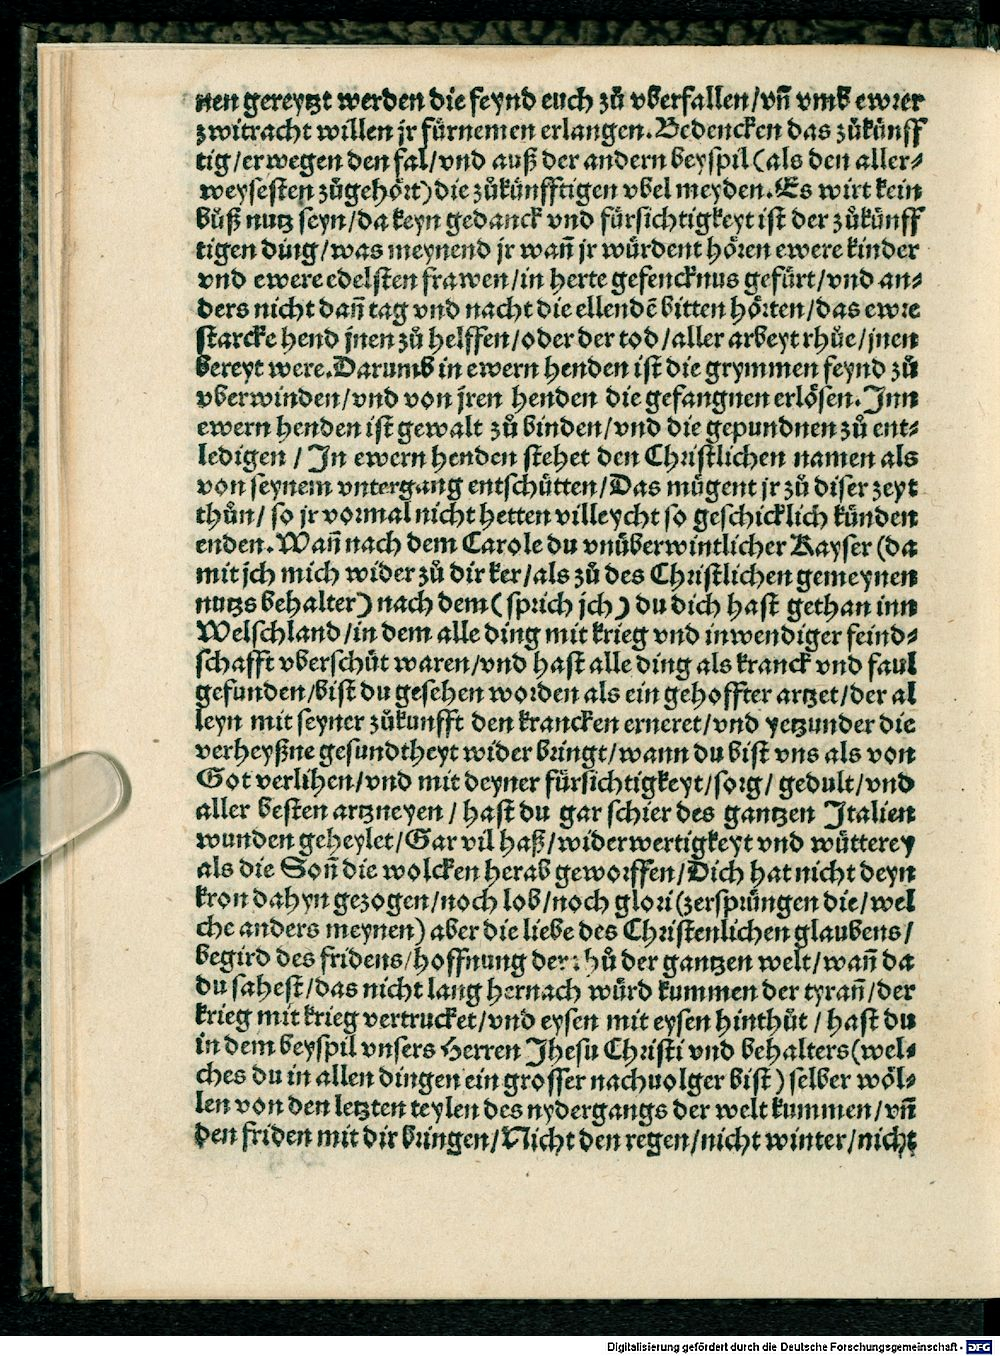 nen gereytzt werden die feynd euch zů vberfallen/vñ vmb ewrer
zwitracht willen jr fürnemen erlangen. Bedencken das zůkünff
tig/erwegen den fal/vnd auß der andern beyspil (als den aller⸗
weysesten zůgehört) die zůkünfftigen vbel meyden. Es wirt kein
bůß nutz seyn/da keyn gedanck vnd fürsichtigkeyt ist der zůkünff
tigen ding/was meynend jr wañ jr würdent hören ewere kinder
vnd ewere edelsten frawen/in herte gefencknus gefürt/vnd an⸗
ders nicht dañ tag vnd nacht die ellendẽ bitten hörten/das ewre
starcke hend jnen zů helffen/oder der tod/aller arbeyt rhůe/jnen
bereyt were. Darumb in ewern henden ist die grymmen feynd zů
vberwinden/vnd von jren henden die gefangnen erlösen. Inn
ewern henden ist gewalt zů binden/vnd die gepundnen zů ent⸗
ledigen / In ewern henden stehet den Christlichen namen als
von seynem vntergang entschütten/Das mügent jr zů diser zeyt
thůn/ so jr vormal nicht hetten villeycht so geschicklich künden
enden. Wañ nach dem Carole du vnüberwintlicher Kayser (da
mit jch mich wider zů dir ker/als zů des Christlichen gemeynen
nutzs behalter) nach dem ( sprich jch ) du dich hast gethan inn
Welschland/in dem alle ding mit krieg vnd inwendiger feind⸗
schafft vberschüt waren/vnd hast alle ding als kranck vnd faul
gefunden/bist du gesehen worden als ein gehoffter artzet/der al
leyn mit seyner zůkunfft den krancken erneret/vnd yetzunder die
verheyßne gesundtheyt wider bringt/wann du bist vns als von
Got verlihen/vnd mit deyner fürsichtigkeyt/sorg/ gedult/vnd
aller besten artzneyen / hast du gar schier des gantzen Italien
wunden geheylet/Gar vil haß/widerwertigkeyt vnd wütterey
als die Soñ die wolcken herab geworffen/Dich hat nicht deyn
kron dahyn gezogen/noch lob/noch glori (zersprüngen die/wel
che anders meynen) aber die liebe des Christenlichen glaubens/
begird des fridens/hoffnung der rhů der gantzen welt/wañ da
du sahest/das nicht lang hernach würd kummen der tyrañ/der
krieg mit krieg vertrucket/vnd eysen mit eysen hinthüt / hast du
in dem beyspil vnsers Herren Jhesu Christi vnd behalters (wel⸗
ches du in allen dingen ein grosser nachuolger bist ) selber wöl⸗
len von den letzten teylen des nydergangs der welt kummen/vñ
den friden mit dir bringen/Nicht den regen/nicht winter/nicht
Digitalisierung gefördert durch die Deutsche Forschungsgemeinschaft - DFG